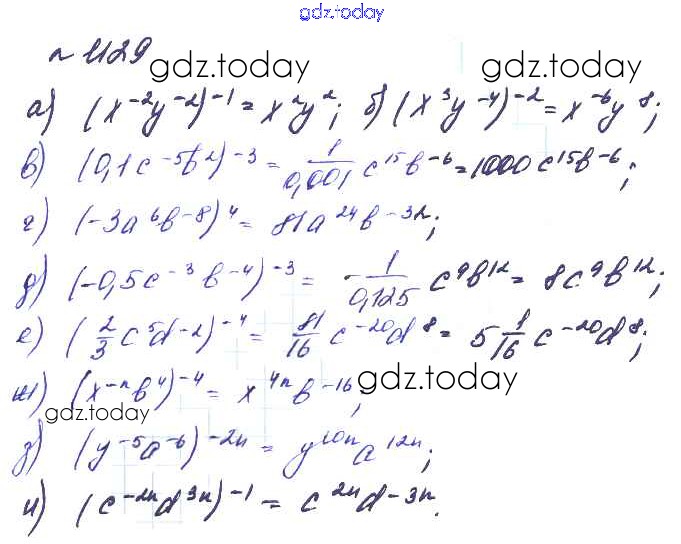 gdz.today
n 1129
gdz.today gdz.today
а) (x⁻²y⁻²)⁻¹ = x²y²; б) (x³y⁻⁴)⁻² = x⁻⁶y⁸;
в) (0,1c⁻⁵b²)⁻³ = 1/0,001 c¹⁵b⁻⁶ = 1000c¹⁵b⁻⁶;
г) (-3a⁶b⁻⁸)⁴ = 81a²⁴b⁻³²;
д) (-0,5c⁻³b⁻⁴)⁻³ = -1/0,125 c⁹b¹² = 8c⁹b¹²;
е) (2/3 c⁵d⁻²)⁻⁴ = 81/16 c⁻²⁰d⁸ = 5 1/16 c⁻²⁰d⁸;
ж) (x⁻ⁿb⁴)⁻⁴ = x⁴ⁿb⁻¹⁶;
gdz.today gdz.today
з) (y⁻⁵a⁻⁶)⁻²ⁿ = y¹⁰ⁿa¹²ⁿ;
и) (c⁻²ⁿd³ⁿ)⁻¹ = c²ⁿd⁻³ⁿ.